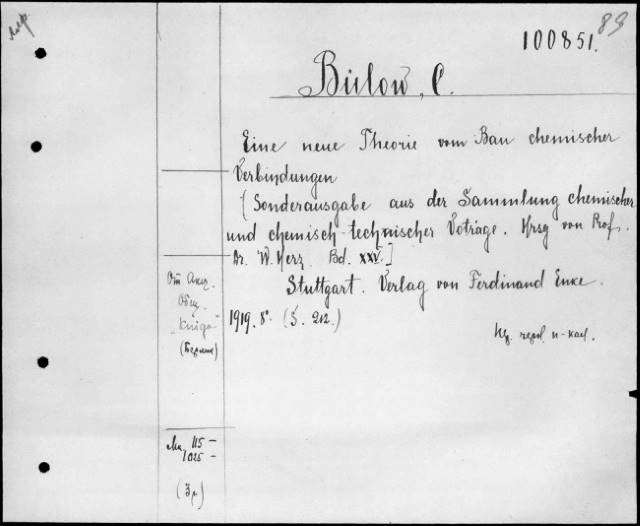 89
100851.
Bülow, C.
Eine neue Theorie vom Bau chemischer
Verbindungen
[Sonderausgabe aus der Sammlung chemischer
und chemisch-technischer Voträge. Hrsg von Prof.
Dr. W. Herz. Bd. XXV.]
Stuttgart. Verlag von Ferdinand Enke.
1919. 8°. (S. 212.)
От Акц.
Общ.
"Книга"
(Берлин)
115 –
1025 –